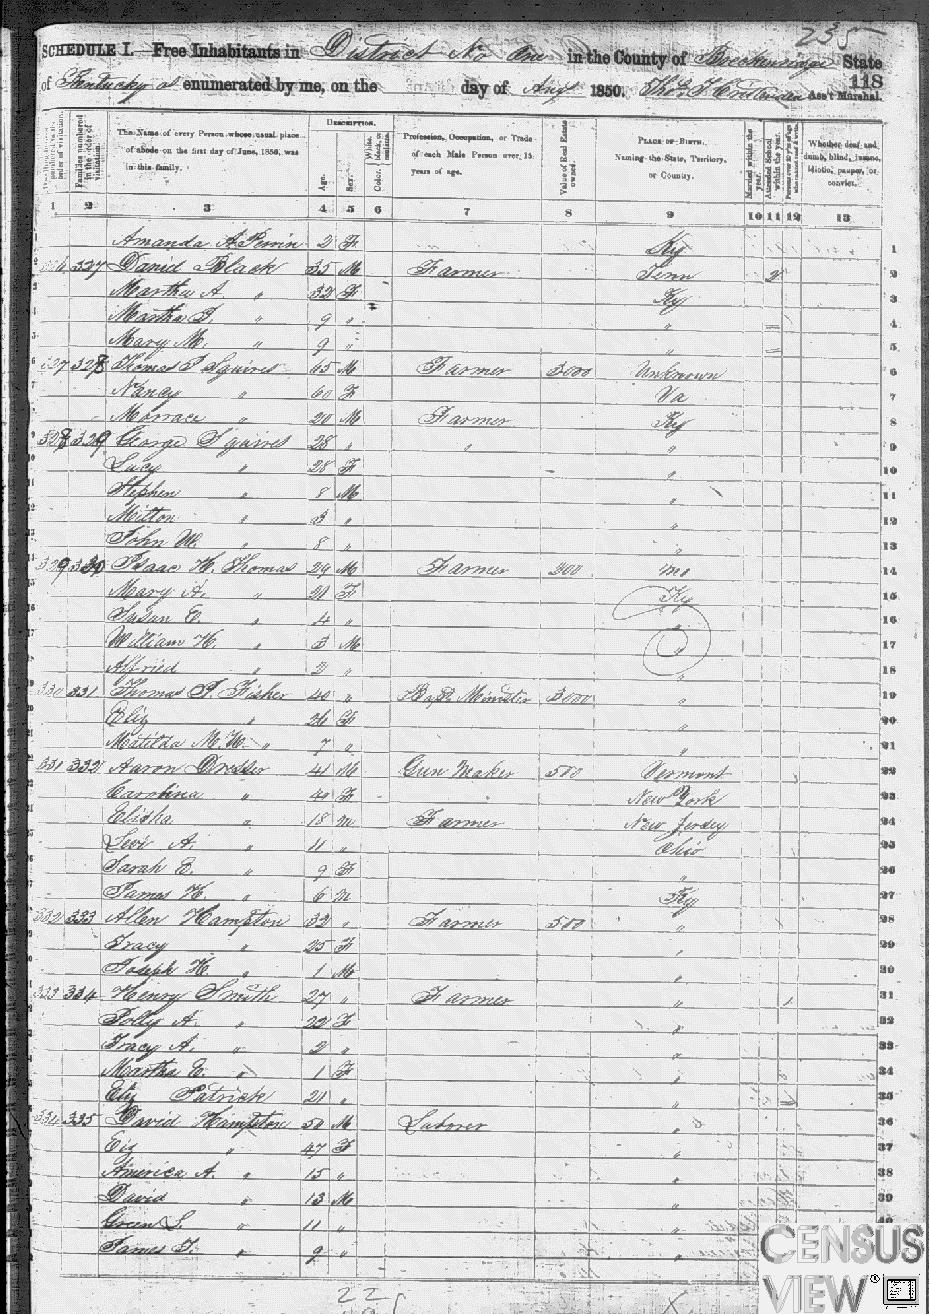 235
SCHEDULE I.—Free Inhabitants in District No One in the County of Breckenridge State
of Kentucky enumerated by me, on the day of Aug 1850. Ass't Marshal.
118
DESCRIPTION.
The Name of every Person whose usual place of abode on the first day of June, 1850, was in this family.
Age.
Sex.
Profession, Occupation, or Trade of each Male Person over 15 years of age.
Value of Real Estate owned.
PLACE OF BIRTH. Naming the State, Territory, or Country.
Married within the year.
Attended School within the year.
Whether deaf and dumb, blind, insane, idiotic, pauper, or convict.
1 2 3 4 5 6 7 8 9 10 11 12 13
Amanda A. Perrin 2 F Ky 1
327 David Black 35 M Farmer Tenn 2 2
Martha A. " 32 F Ky 3
Martha J. " 9 " " 4
Mary M. " 9 " " 5
327 328 Thomas P Squires 65 M Farmer 3000 Unknown 6
Nancy " 60 F Va 7
" 20 M Farmer Ky 8
328 329 George Squires 28 " " " 9
Lucy " 28 F " 10
Stephen " 8 M " 11
Milton " 3 " " 12
John W. " 8 " " 13
329 330 Isaac H. Thomas 29 M Farmer 200 Mo 14
Mary A. " 21 F Ky 15
Susan E. " 4 " " 16
William H. " 3 M " 17
Alfried " 2 " " 18
330 331 Thomas J. Fisher 40 " Bap. Minister 3000 " 19
Eliz " 26 F " 20
Matilda M. W. " 7 " " 21
331 332 Aaron Dresser 41 M Gun Maker 500 Vermont 22
Carolina " 40 F New York 23
Elisha " 18 m Farmer New Jersey 24
Levi A. " 11 " Ohio 25
Sarah E. " 9 F " 26
James H. " 6 m Ky 27
332 333 Allen Hampton 32 " Farmer 500 " 28
Tracy " 25 F " 29
Joseph H. " 1 M " 30
333 334 Henry Smith 27 " Farmer " 31
Polly A. " 22 F " 32
Tracy A. " 2 " " 33
Martha E. " 1 F " 34
Eliz Patrick 21 " " 35
334 335 David Hampton 50 M Laborer " 36
Eiz " 47 F " 37
America A. " 15 " " 38
David " 13 M " 39
Green L. " 11 " " 40
James T. " 9 " "
22
CENSUS
VIEW®